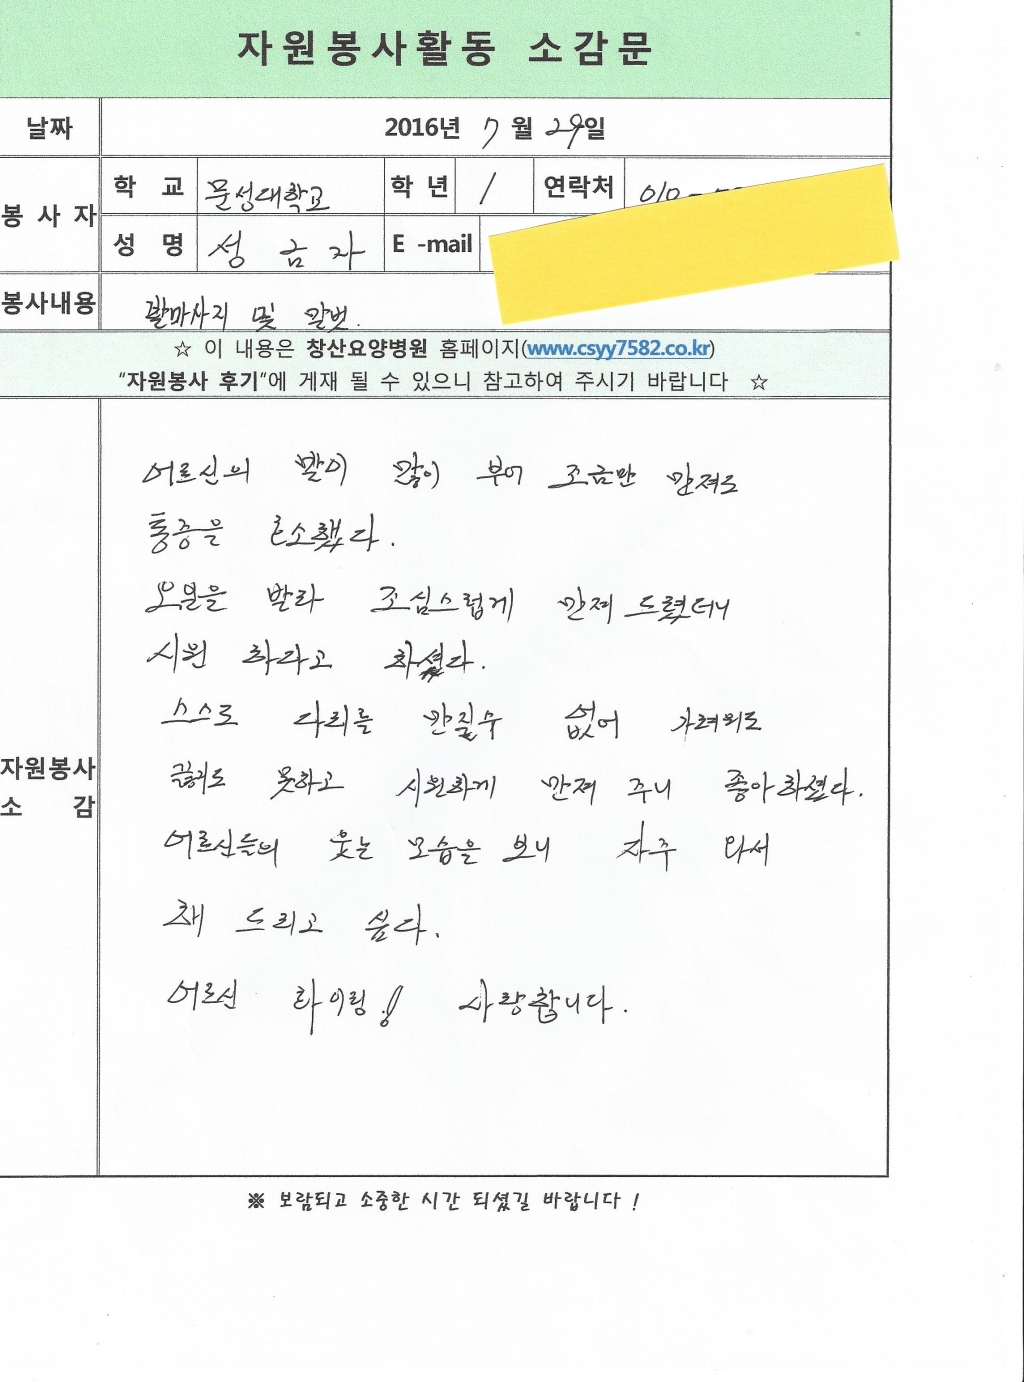 자원봉사활동 소감문
날짜 2016년 7월 29일
봉사자 학교 문성대학교 학년 1 연락처 010-
성명 성금자 E-mail
봉사내용 발마사지 및 말벗.
☆ 이 내용은 창산요양병원 홈페이지(www.csyy7582.co.kr)
"자원봉사 후기"에 게재 될 수 있으니 참고하여 주시기 바랍니다 ☆
자원봉사
소 감
어르신의 발이 많이 부어 조금만 만져도
통증을 호소했다.
오일을 발라 조심스럽게 만져 드렸더니
시원 하라고 하셨다.
스스로 다리를 만질수 없어 가려워도
긁지도 못하고 시원하게 만져 주니 좋아하셨다.
어르신들의 웃는 모습을 보니 자주 와서
해 드리고 싶다.
어르신 화이링! 사랑합니다.
※ 보람되고 소중한 시간 되셨길 바랍니다 !